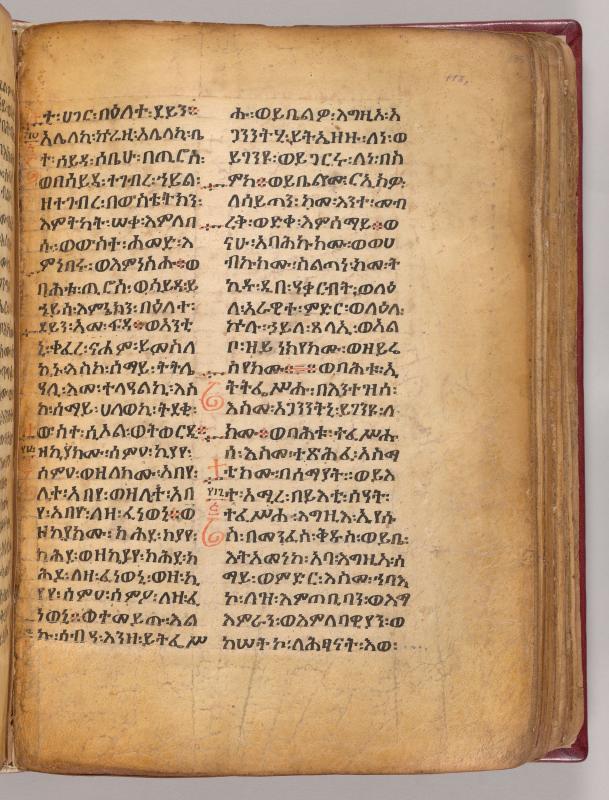 ት፡ሀገር፡በዕለት፡ደይን፨
አሌለኪ፡ኮራዚ፡አሌለኪ፡ቤ
ት፡ሳይዳ፡ሶበሁ፡በጢሮስ፡
ወበሲዶና፡ተገብረ፡ኀይል፡
ዘተገብረ፡በውስቴትክን፡
እምትካት፡ሠቀ፡እምለብ
ሱ፡ወውስተ፡ሐመድ፡እ
ምነበሩ፡ወእምነስሑ፨ወ
ባሕቱ፡ጢሮስ፡ወሳይዳ፡ይ
ኄይሳ፡እምኔክን፡በዕለተ፡
ደይን፡አመ፡ፍዳ፨ወአንቲ
ኒ፡ቅፈረ፡ናሆም፡ይመስለ
ኪኑ፡እስከ፡ሰማይ፡ትትሌ
ዓሊ፡እመ፡ተላዓልኪ፡እስ
ከ፡ሰማይ፡ሀለወኪ፡ትደቂ፡
ውስተ፡ሲኦል፡ወትወርዲ፨
ዘኪያክሙ፡ሰምዐ፡ኪያየ፡
ሰምዐ፡ወዘለክሙ፡አበየ፡
ሊተ፡አበየ፡ወዘሊተ፡አበ
የ፡አበየ፡ለዘ፡ፈነወኒ፨ወ
ዘኪያክሙ፡ክሕደ፡ኪያየ፡
ክሕደ፡ወዘኪያየ፡ክሕደ፡ክ
ሕደ፡ለዘ፡ፈነወኒ፡ወዘ፡ኪ
ያየ፡ሰምዐ፡ሰምዖ፡ለዘ፡ፈ
ነወኒ፡፡ወተመይጡ፡እል
ኩ፡ሰብዓ፡እንዘ፡ይትፌሥ
ሑ፡ወይቤልዎ፡እግዚእ፡አ
ጋንንትሂ፡ይትኤዘዙ፡ለነ፡ወ
ይገንዩ፡ወይገርሩ፡ለነ፡በስ
ምከ፨ወይቤሎሙ፡ርኢክዎ፡
ለሰይጣን፡ከመ፡እንተ፡መብ
ረቅ፡ወድቀ፡እምሰማይ፨ወ
ናሁ፡አባሕኩክሙ፡ወወሀ
ብኩክሙ፡ስልጣነ፡ከመ፡ት
ኪዱ፡ዲበ፡ዓቅርብት፡ወለዕ
ለ፡አራዊተ፡ምድር፡ወላዕለ፡
ኵሉ፡ኃይለ፡ጸላኢ፡ወአል
ቦ፡ዘይነክየክሙ፡ወዘይሬ
ስየክሙ፡፡ወባሕቱ፡ኢ
ትትፌሥሑ፡በእንተ፡ዝሰ፡
እስመ፡አጋንንትኒ፡ይገንዩ፡ለ
ክሙ፨ወባሕቱ፡ተፈሥሑ
ሰ፡እስመ፡ተጽሕፈ፡አስማ
ቲክሙ፡በሰማያት፡፡ወይእ
ተ፡አሚረ፡በይእቲ፡ሰዓት፡
ተፈሥሐ፡እግዚእ፡ኢየሱ
ስ፡በመንፈስ፡ቅዱስ፡ወይቤ፡
እትአመነከ፡አባ፡እግዚአ፡ሰ
ማይ፡ወምድር፡እስመ፡ኀባእ
ኮ፡ለዝ፡እምጠቢባን፡ወእማ
እምራን፡ወእምለባዊያን፡ወ
ከሠትኮ፡ለሕፃናት፡እወ፡